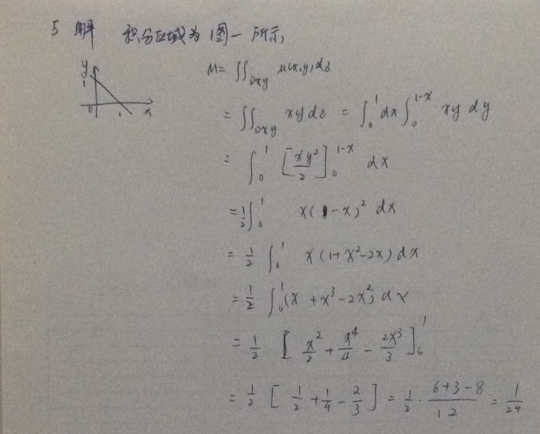 5 解 积分区域为图一所示,
y
1
0 1 x
M = ∬_{Dxy} u(x,y)ds
= ∬_{Dxy} xy ds = ∫_0^1 dx ∫_0^{1-x} xy dy
= ∫_0^1 [xy²/2]_0^{1-x} dx
= 1/2 ∫_0^1 x(1-x)² dx
= 1/2 ∫_0^1 x(1+x²-2x) dx
= 1/2 ∫_0^1 (x+x³-2x²) dx
= 1/2 [x²/2 + x⁴/4 - 2x³/3]_0^1
= 1/2 [1/2 + 1/4 - 2/3] = 1/2 · (6+3-8)/12 = 1/24